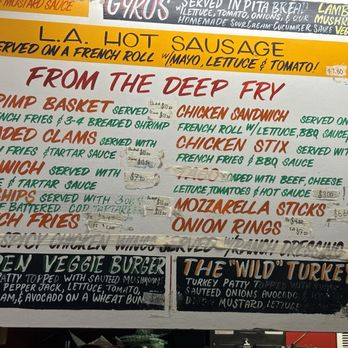 MUSTARD SAUCE
GYROS
SERVED IN PITA BREAD
LETTUCE, TOMATO, ONIONS, & OUR
HOMEMADE SOUR CREAM CUCUMBER SAUCE
LAMB
MUSHRO
L.A. HOT SAUSAGE
SERVED ON A FRENCH ROLL W/MAYO, LETTUCE & TOMATO!
FROM THE DEEP FRY
RIMP BASKET SERVED
FRENCH FRIES & 3-4 BREADED SHRIMP
ADED CLAMS SERVED WITH
FRIES & TARTAR SAUCE
WICH SERVED WITH
E & TARTAR SAUCE
HIPS SERVED WITH
BATTERED COD TARTAR
CH FRIES
CHICKEN SANDWICH SERVED ON
FRENCH ROLL W/LETTUCE, BBQ SAUCE
CHICKEN STIX SERVED WITH
FRENCH FRIES & BBQ SAUCE
TACO LOADED WITH BEEF, CHEESE
LETTUCE, TOMATOES & HOT SAUCE
MOZZARELLA STICKS
ONION RINGS
SPICY CHICKEN WINGS SERVED W/RANCH DRESSING
EN VEGGIE BURGER
PATTY TOPPED WITH SAUTEED MUSHROOMS
PEPPER JACK, LETTUCE, TOMATO,
AM, & AVOCADO ON A WHEAT BUN
THE "WILD" TURKEY
TURKEY PATTY TOPPED WITH
SAUTEED ONIONS AVOCADO &
MUSTARD, LETTUCE